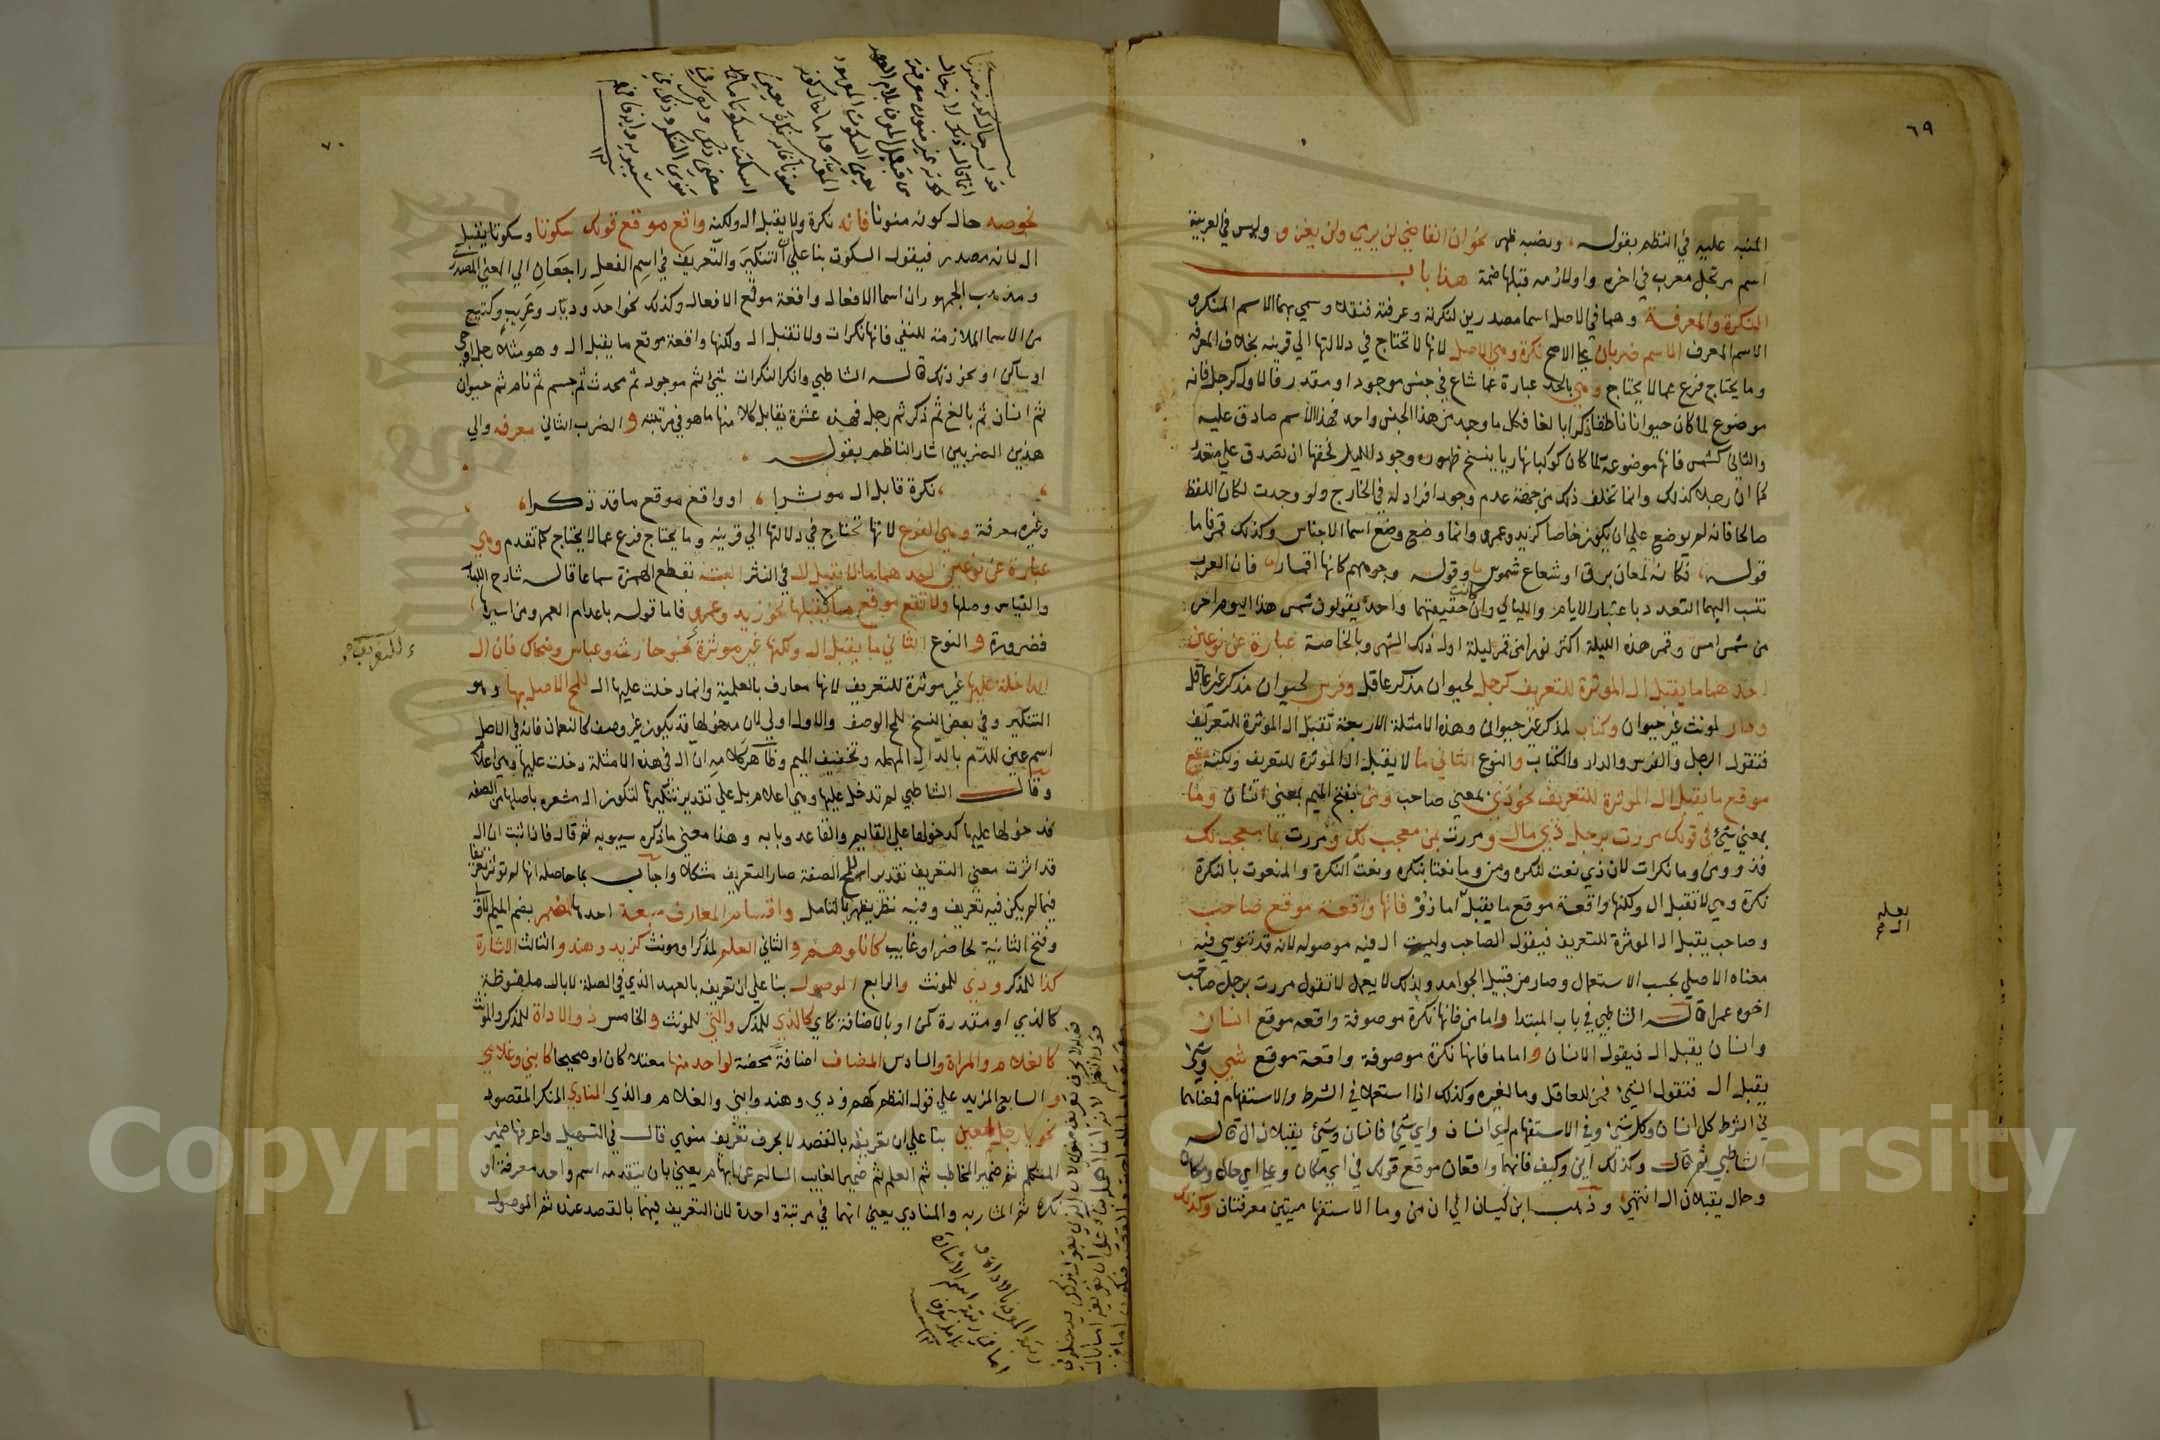 ٦٩
المنبه عليه في النظم بقوله ، ونصبه ظهر نحو ان القاضي لن يرمي ولن يغزو وليس في العربية
اسم مرتجل معرب في اخره واو لازمه قبلها ضمة هذا باب
النكرة والمعرفة وهما في الاصل اسما مصدرين لنكرته وعرفته فنقلا وسمي بهما الاسم المنكر و
الاسم المعرف الاسم ضربان علي الاصح نكرة وهي الاصل لانها لا تحتاج في دلالتها الي قرينه بخلاف المعرفه
وما يحتاج فرع عما لا يحتاج وهي بالحد عبارة عما شاع في جنس موجود او مقدر فالاول كرجل فانه
موضوع لما كان حيوانا ناطقا ذكرا بالغا فكل ما وجد من هذا الجنس واحد فهذا الاسم صادق عليه
والثاني كشمس فانها موضوعة لما كان كوكبا نهاريا ينسخ ظهوره وجود الليل فحقها ان تصدق علي متعدد
كما ان رجلا كذلك وانما تخلف ذلك من جهة عدم وجود افراد له في الخارج ولو وجدت لكان اللفظ
صالحا فانه لم يوضع علي ان يكون خاصا كزيد وعمرو وانما وضع وضع اسما الاجناس وكذلك قمر فاما
قوله ، فكانه لمعان برق او شعاع شموس وقوله وجوههم كانها اقمار فان العرب
تنسب اليهما التعدد باعتبار الايام والليالي وان كانت حقيقتهما واحدة يقولون شمس هذا اليوم احر
من شمس امس وقمر هذه الليلة اكثر نورا من قمر ليلة اول ذلك الشهر وبالخاصة عبارة عن نوعين
احدهما ما يقبل ال الموثرة للتعريف كرجل لحيوان مذكر عاقل وفرس لحيوان مذكر غير عاقل
ودار لمونث غير حيوان وكتاب لمذكر غير حيوان وهذه الامثلة الاربعة تقبل ال الموثرة للتعريف
فتقول الرجل والفرس والدار والكتاب والنوع الثاني ما لا يقبل ال الموثرة للتعريف ولكنه يقع
موقع ما يقبل ال الموثرة للتعريف نحو ذي بمعني صاحب ومن بفتح الميم بمعني انسان وما
بمعني شيء في قولك مررت برجل ذي مال ومررت بمن معجب لك ومررت بما معجب لك
فذو ومن وما نكرات لان ذي نعت لنكره ومن وما نعتا بنكره ونعت النكرة والمنعوت بالنكرة
نكرة وهي لا تقبل ال ولكنها واقعة موقع ما يقبل اما ذو فانها واقعة موقع صاحب
وصاحب يقبل ال الموثرة للتعريف فيقول الصاحب وليست ال فيه موصوله لانه قد تنوسي فيه
معناه الاصلي بحسب الاستعمال وصار من قبيل الجوامد ولذلك لا يعمل لا تقول مررت برجل صاحب
اخوه عمرا قاله الشاطبي في باب المبتدا واما من فانها نكرة موصوفة واقعه موقع انسان
وانسان يقبل ال فيقول الانسان واما ما فانها نكرة موصوفة واقعة موقع شي وشي
يقبل ال فتقول الشيء فمن للعاقل وما لغيره وكذلك اذا استعملا في الشرط والاستفهام فمعناهما
في الشرط كل انسان وكل شيء وفي الاستفهام اي انسان واي شيء فانسان وشيء يقبلان ال قاله
الشاطبي ثم قال وكذلك اين وكيف فانهما واقعان موقع قولك في اي مكان وعلي اي حال ومكان
وحال يقبلان ال انتهي وذهب ابن كيسان الي ان من وما الاستفهاميتين معرفتان وكذلك
يقبله
ال صح
٧٠
نحو صه حال كونه منونا فانه نكرة ولا يقبل ال ولكنه واقع موقع قولك سكوتا وسكوتا يقبل
ال لانه مصدر فيقول السكوت بنا علي ان التنكير والتعريف في اسم الفعل راجعان الي المعني المصدري
ومذهب الجمهور ان اسما الافعال واقعة موقع الافعال وكذلك نحو احد وديار وعريب وكتيع
من الاسما الملازمة للنفي فانها نكرات ولا تقبل ال ولكنها واقعة موقع ما يقبل ال وهو مثلا رجل او حي
او ساكن او نحو ذلك قاله الشاطبي وانكر النكرات شيء ثم موجود ثم محدث ثم جسم ثم نام ثم حيوان
ثم انسان ثم بالغ ثم ذكر ثم رجل فهذه عشرة يقابل كلا منها ما هو في مرتبته والضرب الثاني معرفه والي
هذين الضربين اشار الناظم بقوله
، نكرة قابل ال موثرا ، او واقع موقع ما قد ذكرا ،
وغيره معرفة وهي الفرع لانها تحتاج في دلالتها الي قرينه وما يحتاج فرع عما لا يحتاج كما تقدم وهي
عبارة عن نوعين احدهما ما لا يقبل ال في النثر البتة بقطع الهمزة سماعا قاله شارح اللباب
والقياس وصلها ولا تقع موقع ما يقبلها نحو زيد وعمرو فاما قوله باعد ام العمرو من اسيرها
فضرورة والنوع الثاني ما يقبل ال ولكنها غير موثرة نحو حارث وعباس وضحاك فان ال
الداخلة عليها غير موثرة للتعريف لانها معارف بالعلمية وانما دخلت عليها ال للمح الاصل بها وهو
التنكير وفي بعض النسخ للمح الوصف والاول اولي لان مدخولها قد يكون غير وصف كالنعمان فانه في الاصل
اسم عين للدم بالدال المهمله وتخفيف الميم وظاهر كلامه ان ال في هذه الامثلة دخلت عليها وهي اعلام
وقال الشاطبي لم تدخل عليها وهي اعلام بل علي تقدير تنكيرها لتكون ال مشعرة باصلها من الصفه
فدخولها عليها كدخولها علي القايم والقاعد وبابه وهذا معني ما ذكره سيبويه ثم قال فاذا ثبت ان ال
قد اثرت معني التعريف تقدير المح الصفة صار التعريف مشكلا واجاب بما حاصله انها لم توثر تعريفا
فيما لم يكن فيه تعريف وفيه نظر يظهر بالتامل واقسام المعارف سبعة احدها المضمر بضم الميم الاولي
وفتح الثانية لحاضر او غايب كانا وهم والثاني العلم لمذكر او مونث كزيد وهند والثالث الاشارة
كذا للمذكر وذي للمونث والرابع الموصول بنا علي ان تعريفه بالعهد الذي في الصلة لا بال ملفوظة
كالذي او مقدرة كمن او بالاضافة كاي كالذي للمذكر والتي للمونث والخامس ذو الاداة للمذكر والمونث
كالغلام والمراة والسادس المضاف اضافة محضة لواحد منها معتلا كان او صحيحا كابني وغلامي
والسابع المزيد علي قول النظم كهم وذي وهند وابني والغلام والذي المنادي المنكر المقصود
نحو يا رجل لمعين بنا علي ان تعريفه بالقصد لا بحرف تعريف منوي قال في التسهيل واعرفها ضمير
المتكلم ثم ضمير المخاطب ثم العلم ثم ضمير الغايب السالم عن ابهام يعني بان يتقدمه اسم واحد معرفة او
نكرة ثم المشار به والمنادي يعني انهما في مرتبة واحدة لان التعريف فيهما بالقصد عنده ثم الموصول
للتعريف صح
Copyright © King Saud University
King Saud University
1957